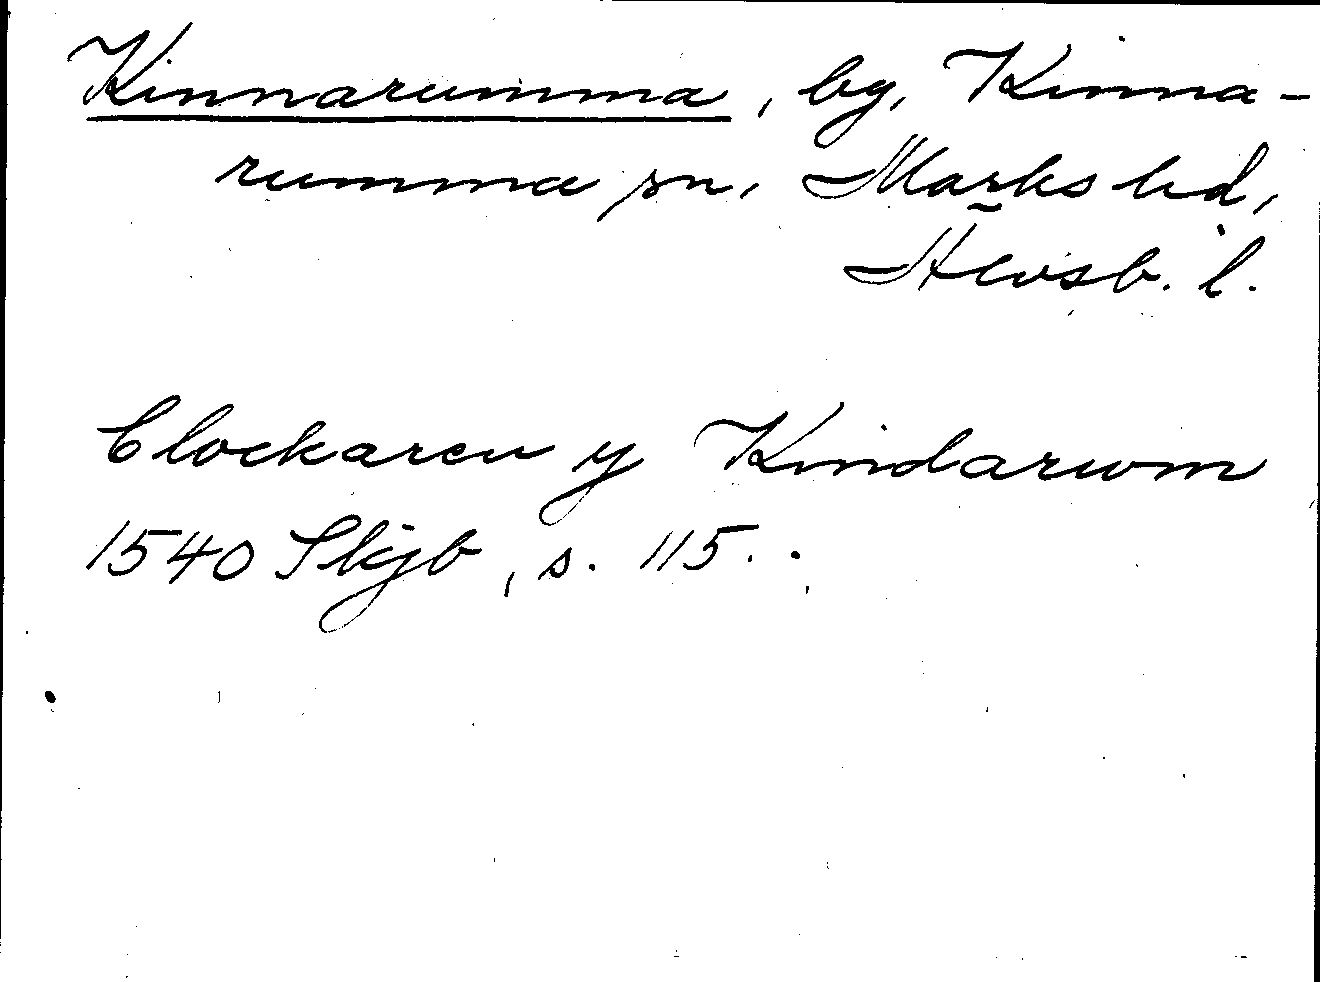 Kinnarumma, by, Kinna-
rumma sn, Marks hd,
Älvsb. l.
Clockaren y Kindarwm
1540 Skjb, s. 115.